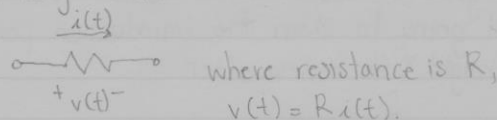 i(t)
where resistance is R,
+ v(t) -
v(t) = R i(t).